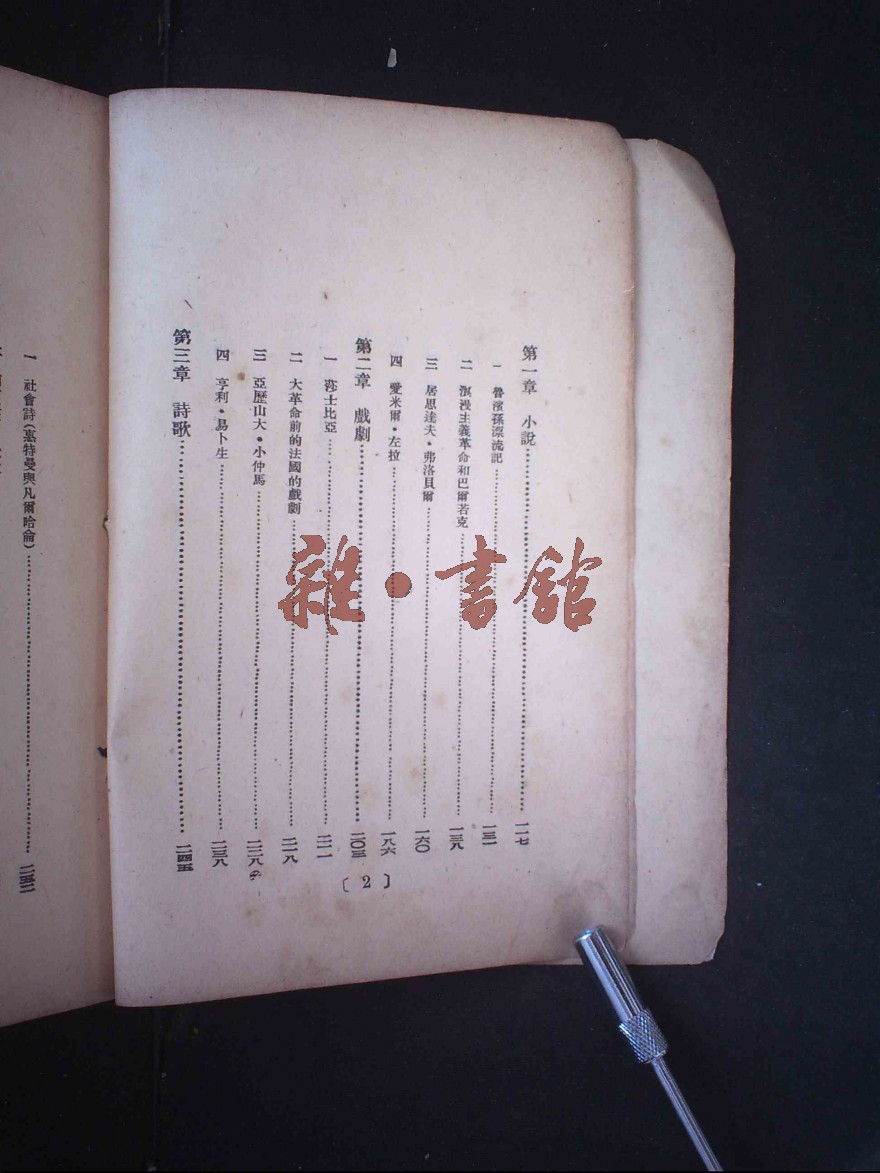 第一章 小說……一一七
一 魯濱孫漂流記……一三一
二 浪漫主義革命和巴爾若克……一三八
三 居思達夫·弗洛貝爾……一六〇
四 愛米爾·左拉……一八六
第二章 戲劇……二〇三
一 莎士比亞……二一一
二 大革命前的法國的戲劇……二一八
三 亞歷山大·小仲馬……二二八
四 亨利·易卜生……二三八
第三章 詩歌……二四五
〔2〕
一 社會詩(惠特曼與凡爾哈侖)……二五二
雜·書館